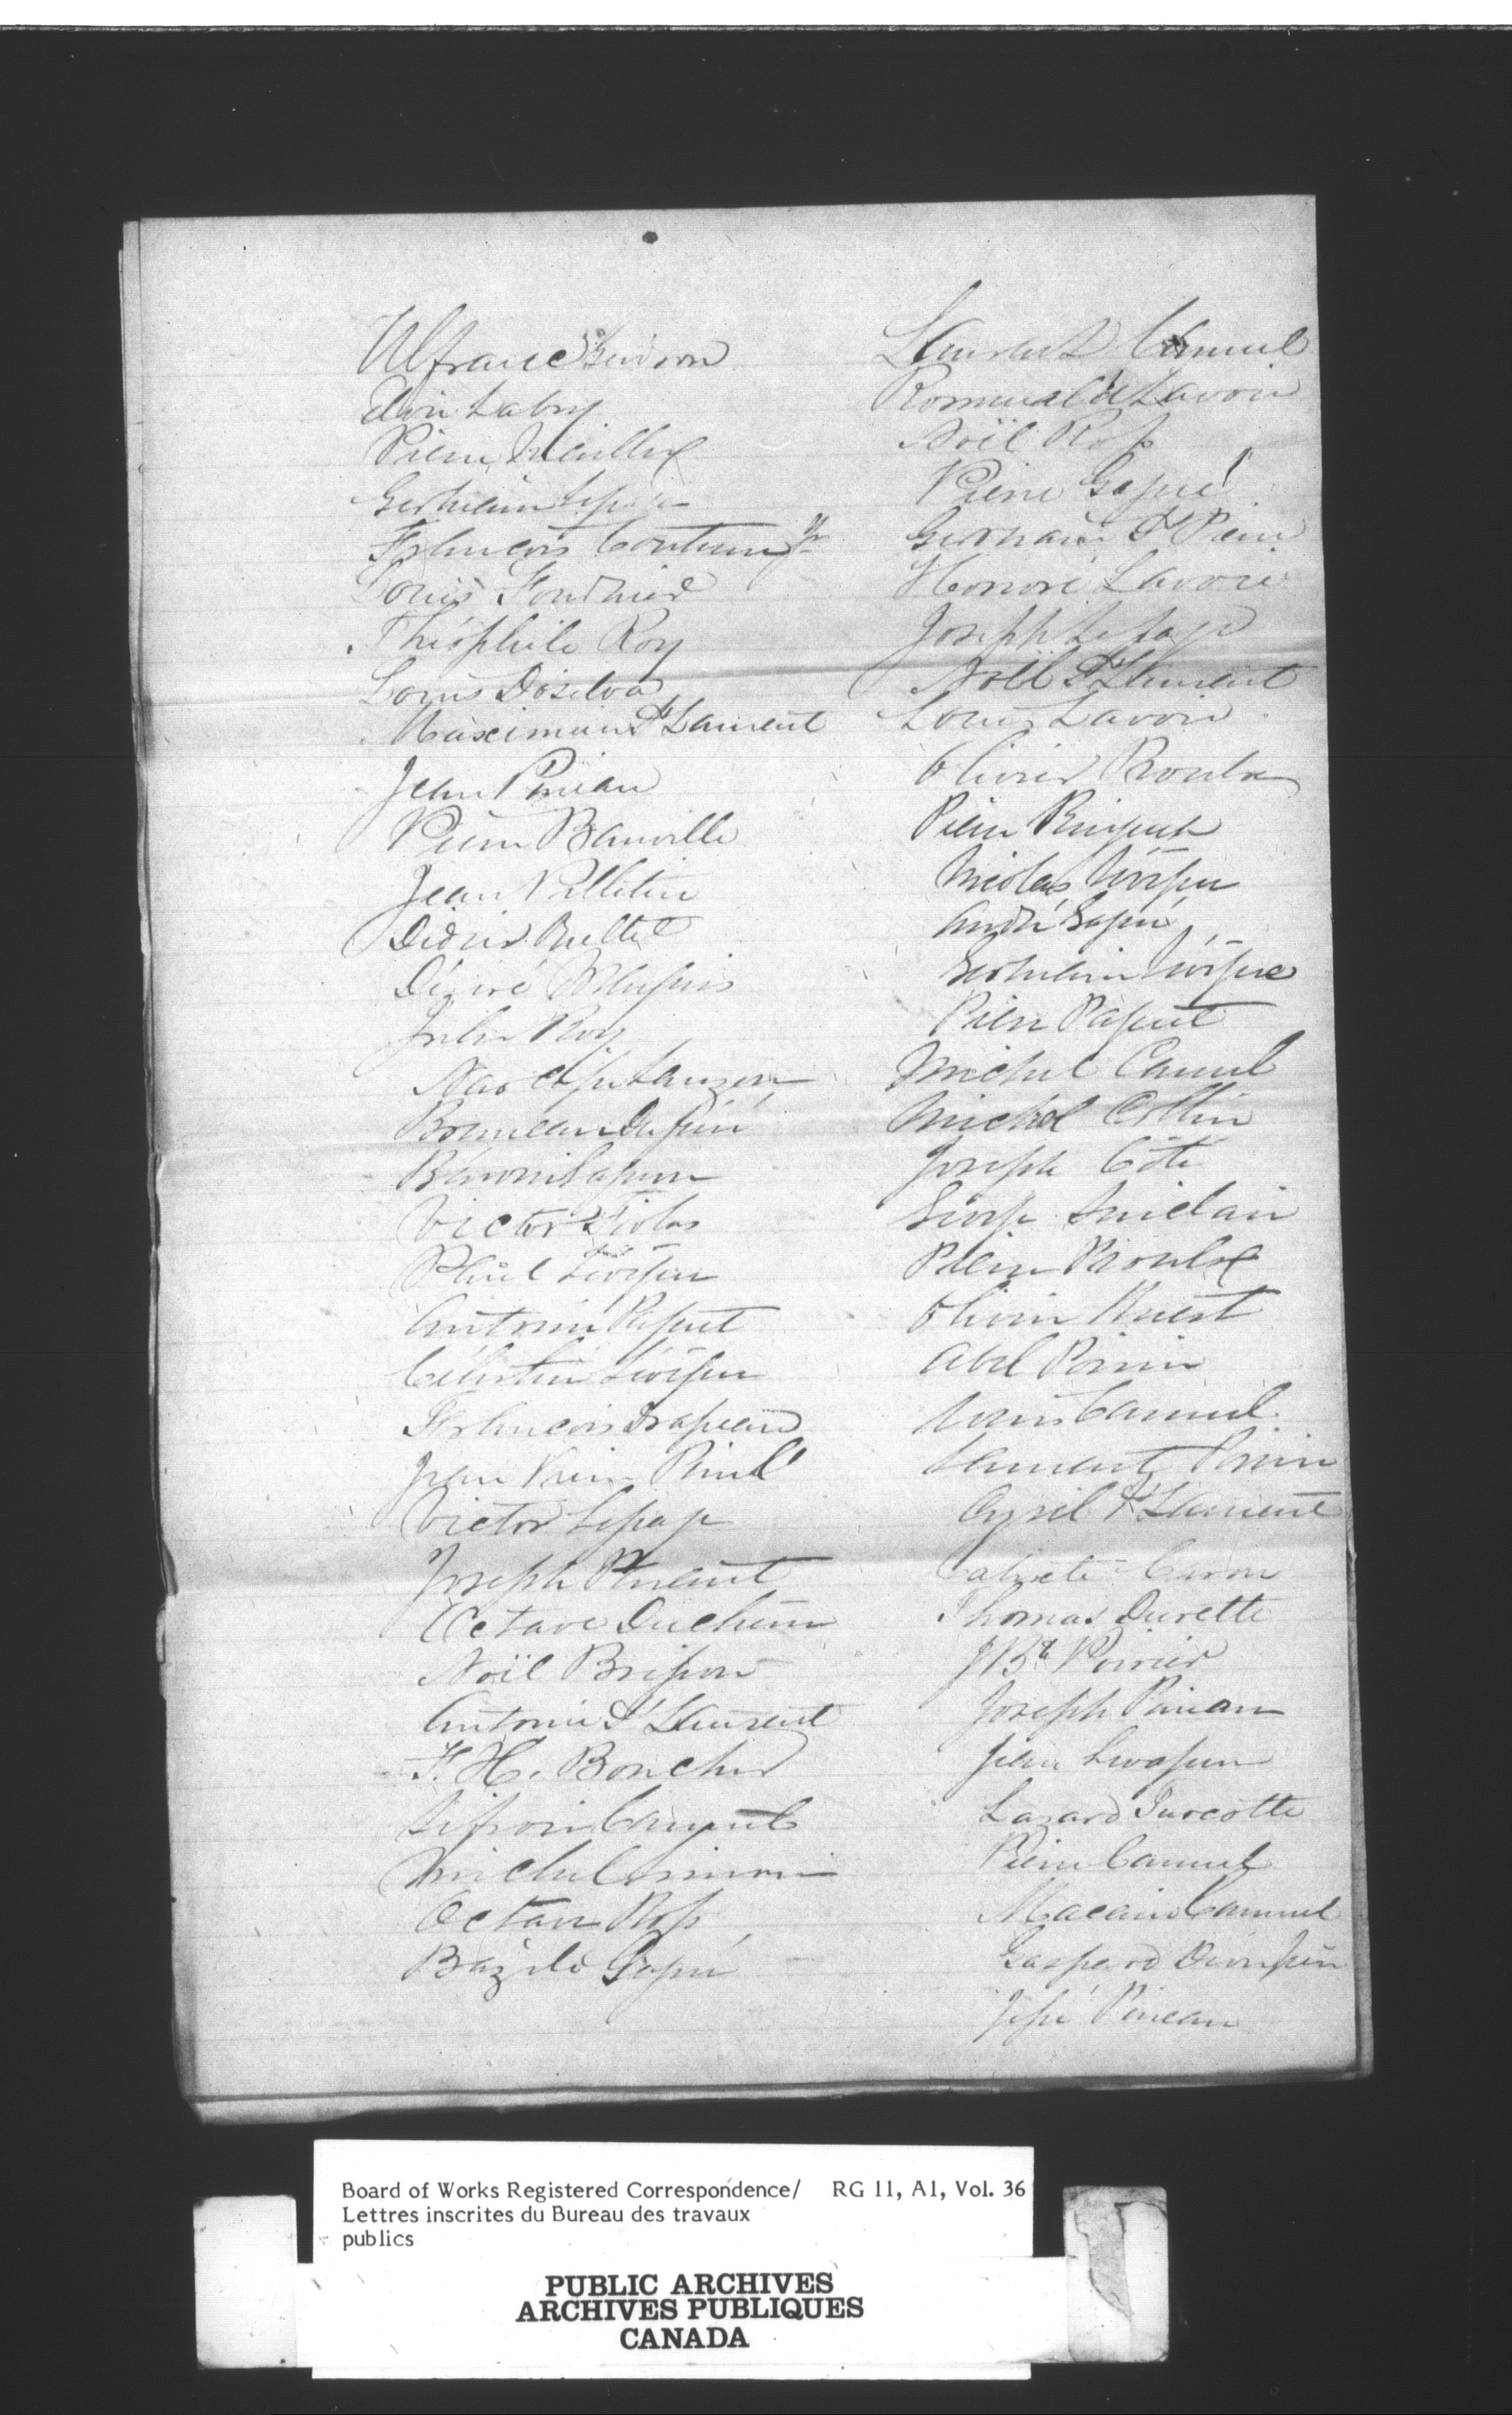 Ulfranc Gendron
Elvin Labry
Pierre Mailloux
Germain Lepage
François Couture Jr
Louis Fournier
Théophile Roy
Louis Dosilva
Maximin St Laurent
Jean Pineau
Pierre Banville
Jean Pelletier
Didier Ruelle
Désiré
Jules Roy
Narcisse Lauzon
Bruneau Dupéré
Bénoni Gagnon
Victor Fiolas
Paul Lévêque
Antoine Piquet
Célestin Lévêque
François Drapeau
Jean Pierre Pinel
Victor Lepage
Joseph Parent
Octave Duchesne
Noël Brisson
Antoine St Laurent
F. H. Boucher
Canuel
Michel
Octave Ross
Bazile Gagné
Laurent Canuel
Romuald Lavoie
Noël Ross
Pierre Gagné
Germain St Pierre
Honoré Lavoie
Joseph Lepage
Noël St Laurent
Louis Lavoie
Olivier Proulx
Pierre Ringuet
Nicolas Lévêque
André Gagné
Germain Lévêque
Pierre Paquet
Michel Canuel
Michel Collin
Joseph Côté
George Sinclair
Pierre Proulx
Olivier Huest
Abel Pinin
Louis Canuel
Laurent Pinin
Cyril St Laurent
Calixte Caron
Thomas Durette
J Bte Poirier
Joseph Pineau
Jean Levasseur
Lazard Turcotte
Pierre Canuel
Macaire Canuel
Gaspard Dionne
Jessé Pineau
Board of Works Registered Correspondence/ RG 11, A1, Vol. 36
Lettres inscrites du Bureau des travaux
publics
PUBLIC ARCHIVES
ARCHIVES PUBLIQUES
CANADA